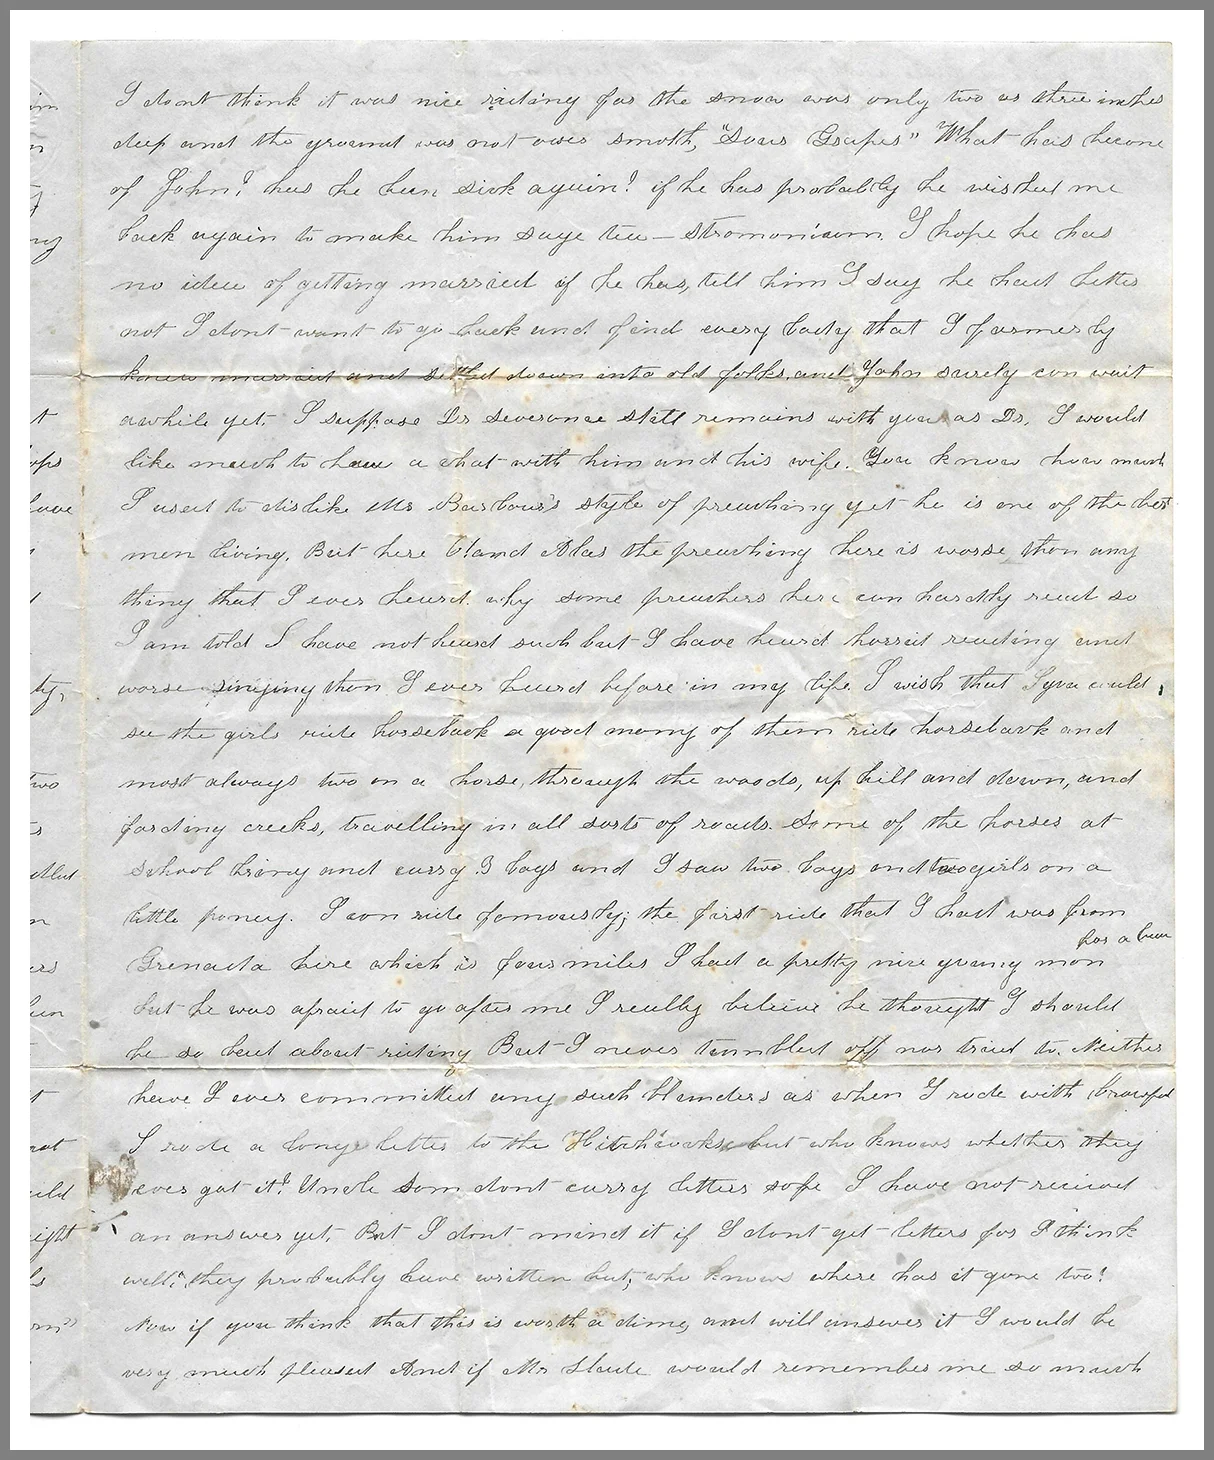 I dont think it was nice riding for the snow was only two or three inches
deep and the ground was not over smoth, "Sour Grapes" What has become
of John? has he been sick again? if he has probably he wished me
back again to make him sage tea — stromonium. I hope he has
no idea of getting married if he has, tell him I say he had better
not I dont want to go back and find every body that I formerly
knew married and settled down into old folks, and John surely can wait
awhile yet. I suppose Dr Severance still remains with you as Dr. I would
like much to have a chat with him and his wife. You know how much
I used to dislike Mr Barbour's style of preaching yet he is one of the best
men living. But here O! and Alas the preaching here is worse than any
thing that I ever heard. why some preachers here can hardly read so
I am told I have not heard such but I have heard horrid reading and
worse singing than I ever heard before in my life. I wish that you could
see the girls ride horseback a good many of them ride horseback and
most always two on a horse, through the woods, up hill and down, and
fording creeks, travelling in all sorts of roads. Some of the horses at
school bring and carry 3 boys and I saw two boys and two girls on a
little poney. I can ride famously; the first ride that I had was from
for a beau
Grenada here which is four miles I had a pretty nice young man
but he was afraid to go after me I really believe he thought I should
be so bad about riding But I never tumbled off nor tried to. Neither
have I ever committed any such blunders as when I rode with Crawford
I rode a longe letter to the Hitchcocks, but who knows whether they
ever got it? Uncle Sam dont carry letters safe I have not recieved
an answer yet. But I dont mind it if I dont get letters for I think
well, they probably have written but, who knows where has it gone too?
Now if you think that this is worth a dime, and will answer it I would be
very much pleased And if Mr Slade would remember me so much